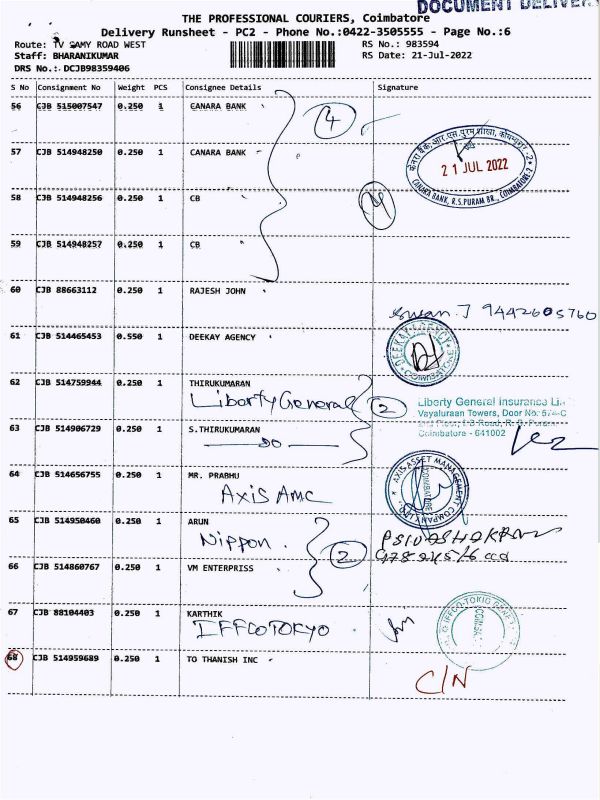 DOCUMENT DELIVER
THE PROFESSIONAL COURIERS, Coimbatore
Delivery Runsheet - PC2 - Phone No.:0422-3505555 - Page No.:6
Route: TV SAMY ROAD WEST
RS No.: 983594
Staff: BHARANIKUMAR
RS Date: 21-Jul-2022
DRS No.: DCJB98359406
S No Consignment No Weight PCS Consignee Details Signature
56 CJB 515007547 0.250 1 CANARA BANK
4
57 CJB 514948250 0.250 1 CANARA BANK
केनरा बैंक, आर.एस.पुरम शाखा,
21 JUL 2022
CANARA BANK, R.S.PURAM BR., COIMBATORE-2
58 CJB 514948256 0.250 1 CB
59 CJB 514948257 0.250 1 CB
60 CJB 88663112 0.250 1 RAJESH JOHN
J 9442605760
61 CJB 514465453 0.550 1 DEEKAY AGENCY
DEEKAY AGENCY
62 CJB 514759944 0.250 1 THIRUKUMARAN
Liberty General
2
Liberty General Insurance
Vayaluraan Towers, Door No: 574-C
Coimbatore - 641002
63 CJB 514906729 0.250 1 S.THIRUKUMARAN
DO
64 CJB 514656755 0.250 1 MR. PRABHU
Axis AMC
AXIS ASSET MANAGEMENT COMPANY LTD
COIMBATORE
65 CJB 514950460 0.250 1 ARUN
Nippon
2
66 CJB 514860767 0.250 1 VM ENTERPRISS
67 CJB 88104403 0.250 1 KARTHIK
IFFCO TOKYO
IFFCO-TOKIO
68 CJB 514959689 0.250 1 TO THANISH INC
C/N